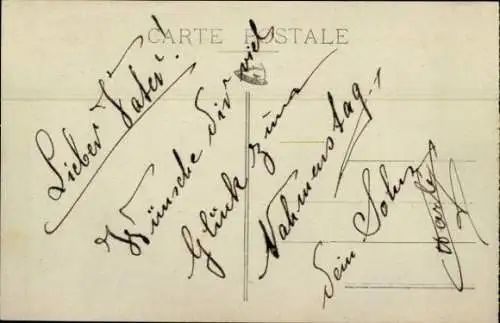 CARTE POSTALE
Lieber Vater!
Wünsche Dir viel
Glück zum
Nahmenstag.
Dein Sohn